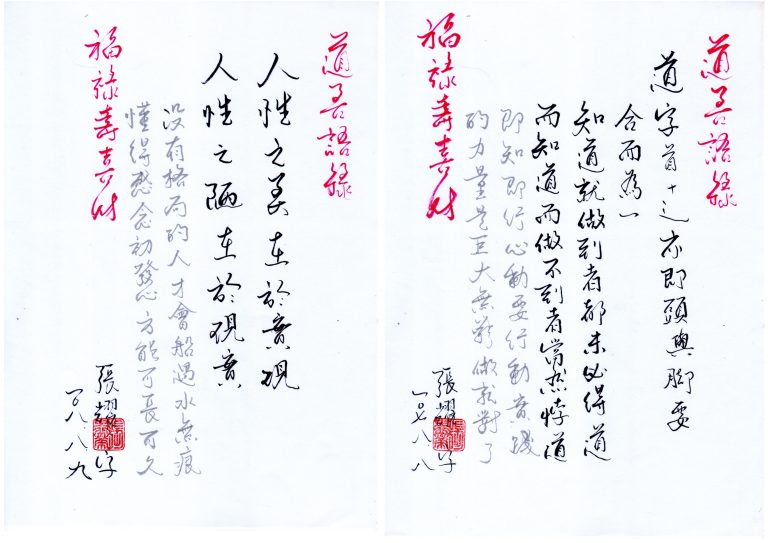 道善語錄
道字首十辶亦即頭與腳要
合而為一
知道就做到者都未必得道
而知道而做不到者當然悖道
即知即行心動要行動實踐
的力量是巨大無窮做就對了
福祿壽喜財
張耀 字
一〇七八八
道善語錄
人性之美在於實現
人性之陋在於現實
沒有格局的人才會船過水無痕
懂得感念初發心方能可長可久
福祿壽喜財
張耀 字
一〇八八九